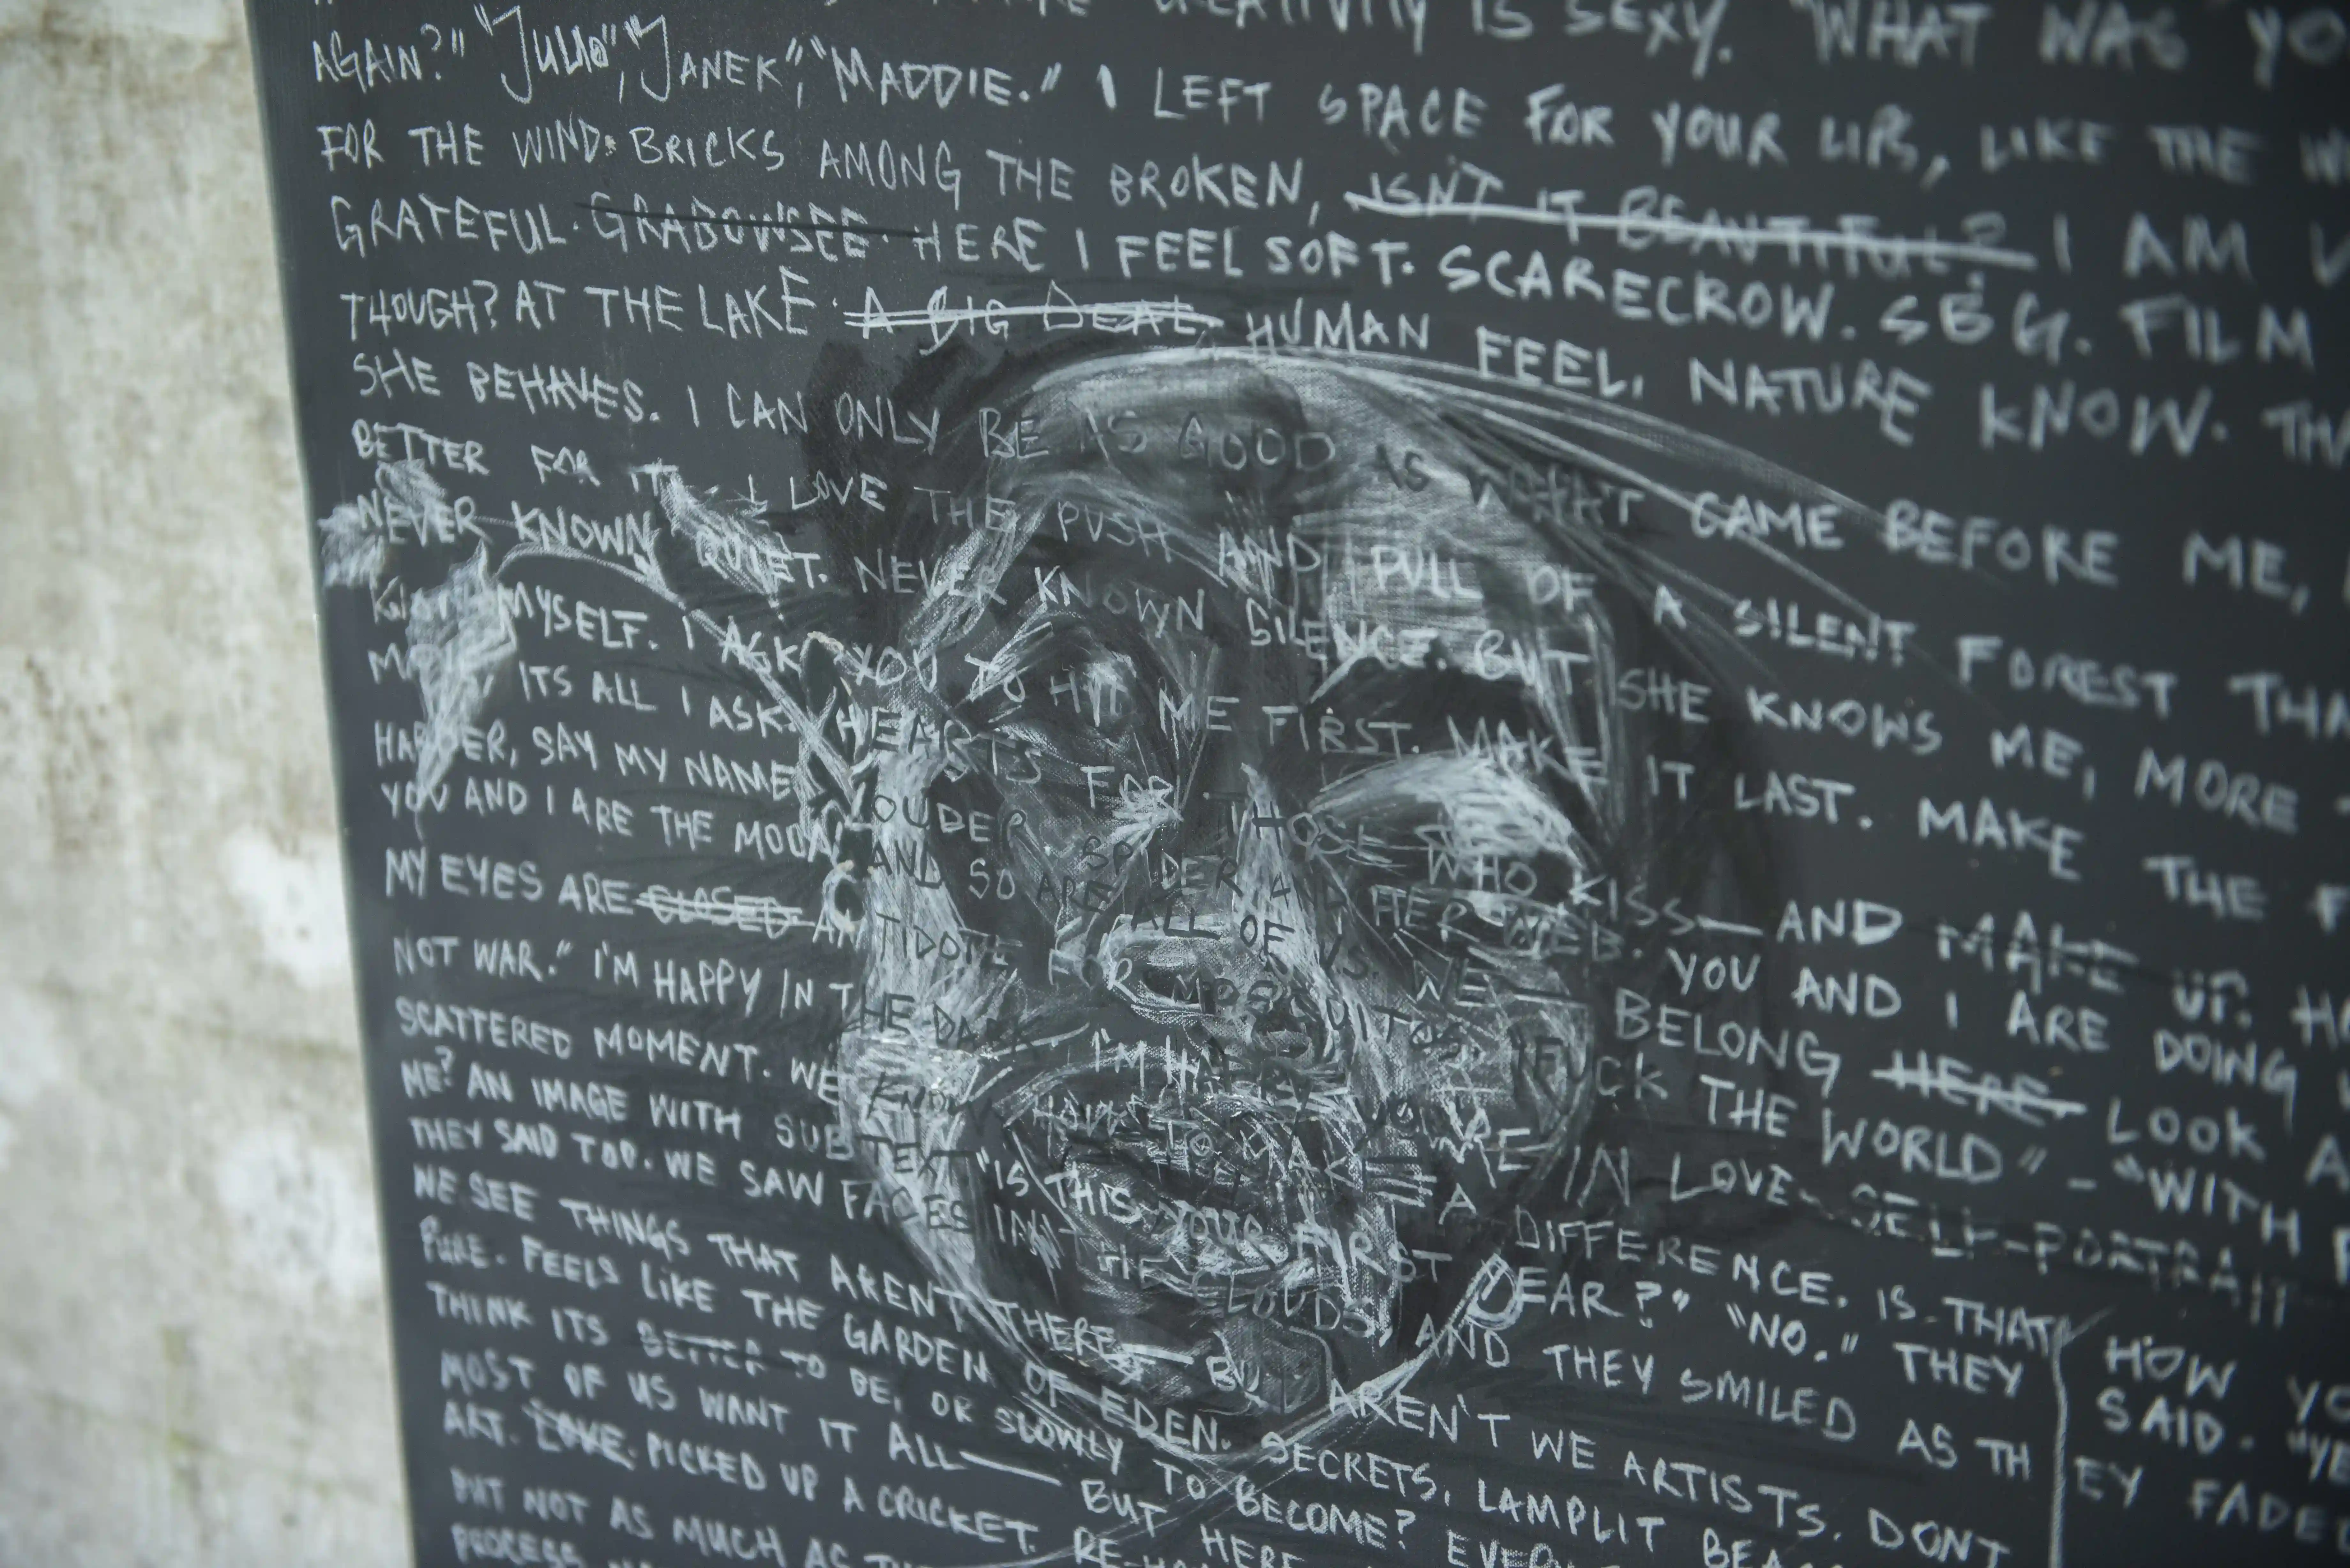 CREATIVITY IS SEXY. "WHAT WAS
AGAIN?" "JULIO", "JANEK", "MADDIE." I LEFT SPACE FOR YOUR LIPS, LIKE THE
FOR THE WIND. BRICKS AMONG THE BROKEN, ISN'T IT BEAUTIFUL? I AM
GRATEFUL. GRABOWSEE. HERE I FEEL SOFT. SCARECROW. SEG. FILM
THOUGH? AT THE LAKE. A BIG DEAL. HUMAN FEEL. NATURE KNOW.
SHE BEHAVES. I CAN ONLY BE AS GOOD AS WHAT CAME BEFORE ME,
BETTER FOR IT. I LOVE THE PUSH AND PULL OF A SILENT FOREST
NEVER KNOWN QUIET. NEVER KNOWN SILENCE. BUT SHE KNOWS ME, MORE
MYSELF. I ASK YOU TO HIT ME FIRST. MAKE IT LAST. MAKE THE
ITS ALL I ASK. HEARTS FOR THOSE WHO KISS — AND MAKE UP.
HARDER, SAY MY NAME LOUDER SPIDER AND HER WEB. YOU AND I ARE DOING
YOU AND I ARE THE MODAL AND SO ARE ALL OF US. WE BELONG HERE. LOOK
MY EYES ARE CLOSED ANTIDOTE FOR MOSQUITOS. "FUCK THE WORLD" - "WITH
NOT WAR." I'M HAPPY IN THE DARK. I'M HAPPY IN LOVE - SELF-PORTRAIT
SCATTERED MOMENT. WE KNOW HOW TO MAKE A DIFFERENCE. IS THAT HOW
ME? AN IMAGE WITH SUBTEXT "IS THIS YOUR FIRST DEAR?" "NO." THEY SAID. "YE
THEY SAID TOO. WE SAW FACES IN THE CLOUDS, AND THEY SMILED AS THEY FADE
WE SEE THINGS THAT AREN'T THERE — BUT AREN'T WE ARTISTS. DONT
PURE. FEELS LIKE THE GARDEN OF EDEN. SECRETS. LAMPLIT
THINK ITS BETTER TO BE, OR SLOWLY TO BECOME?
MOST OF US WANT IT ALL — BUT HERE
ART. LOVE. PICKED UP A CRICKET.
BUT NOT AS MUCH AS
PROCESS